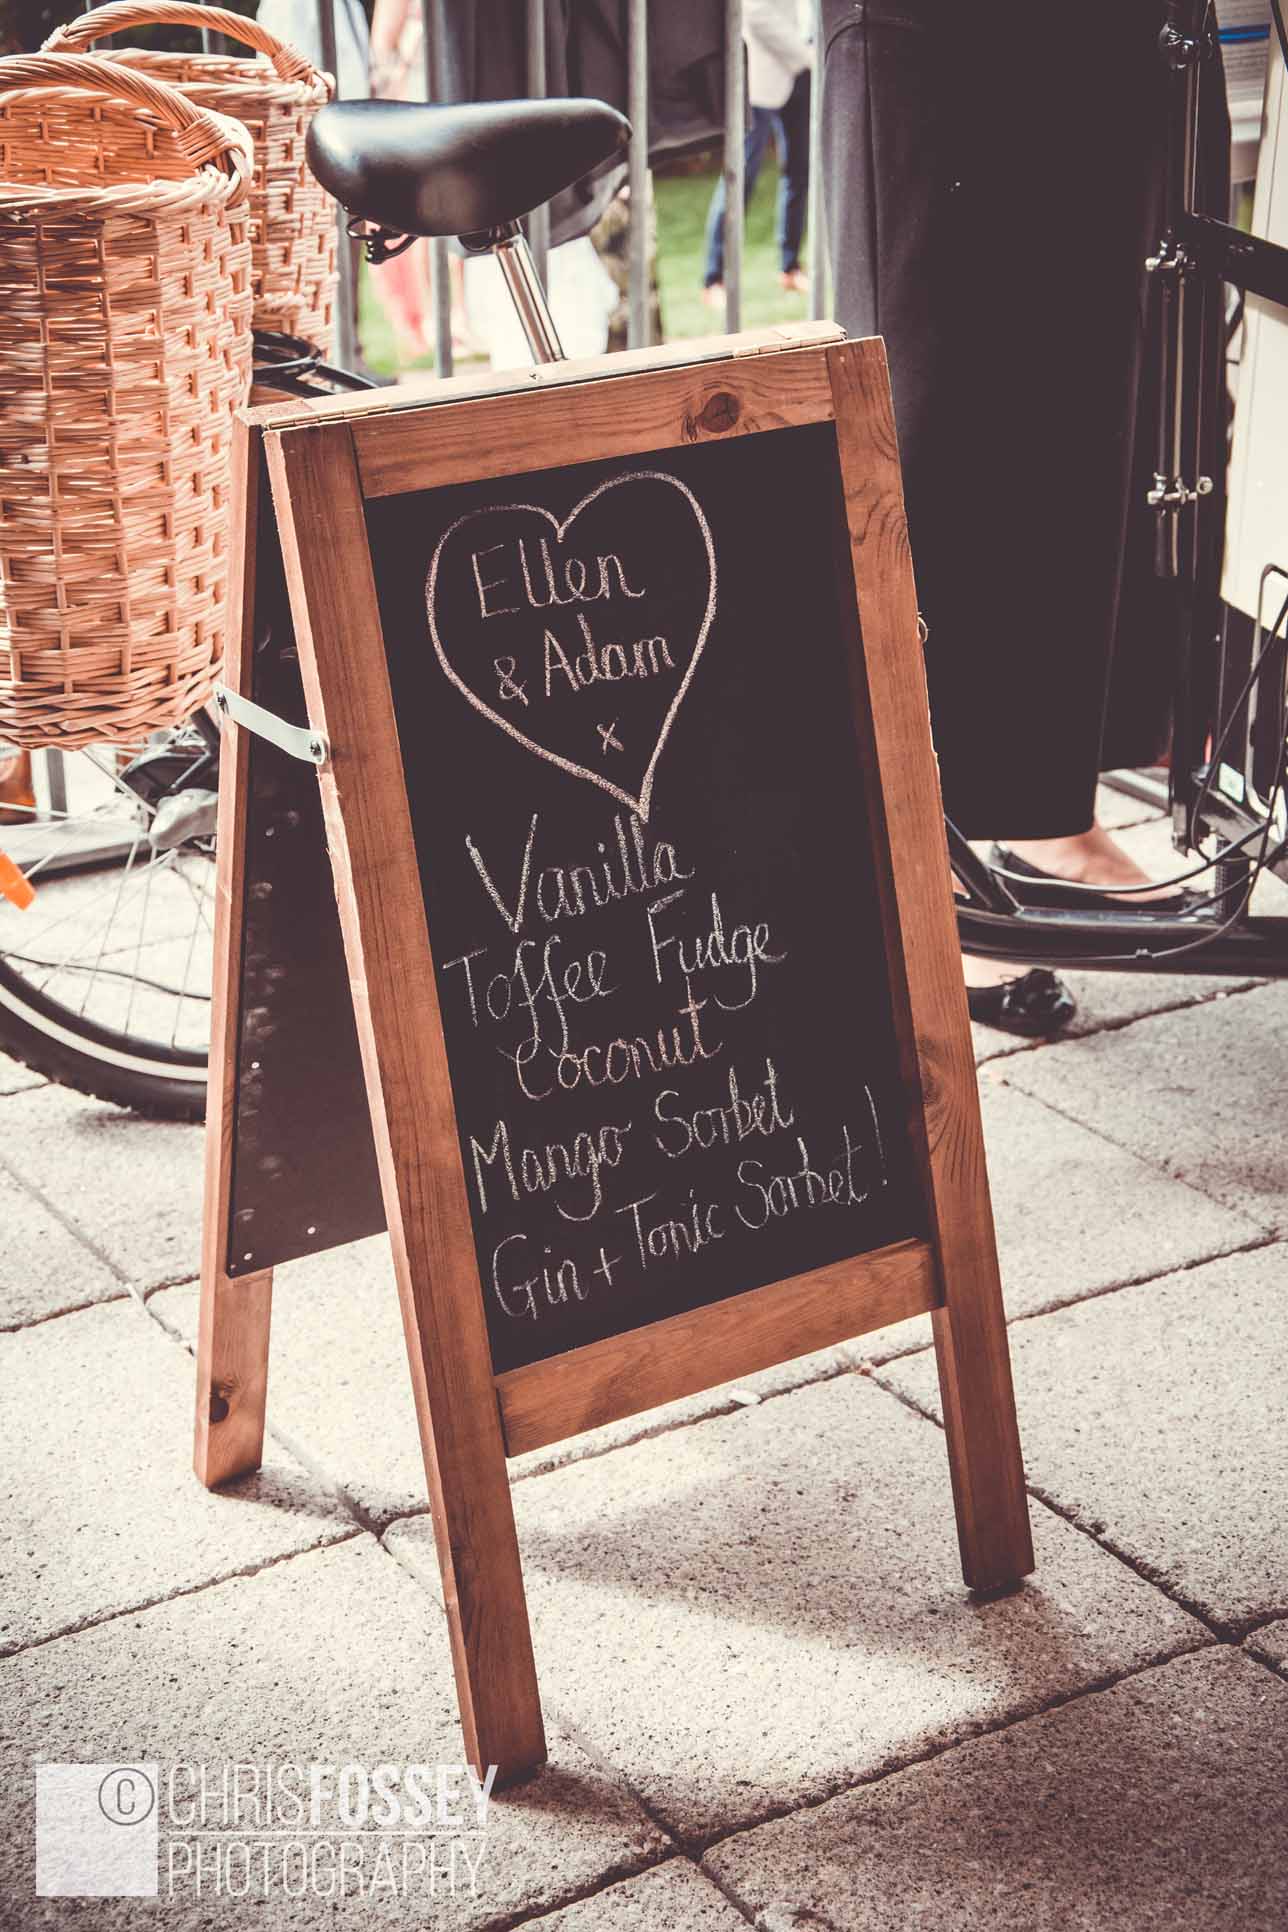 Ellen
& Adam
x
Vanilla
Toffee Fudge
Coconut
Mango Sorbet
Gin + Tonic Sorbet!
© CHRISFOSSEY
PHOTOGRAPHY